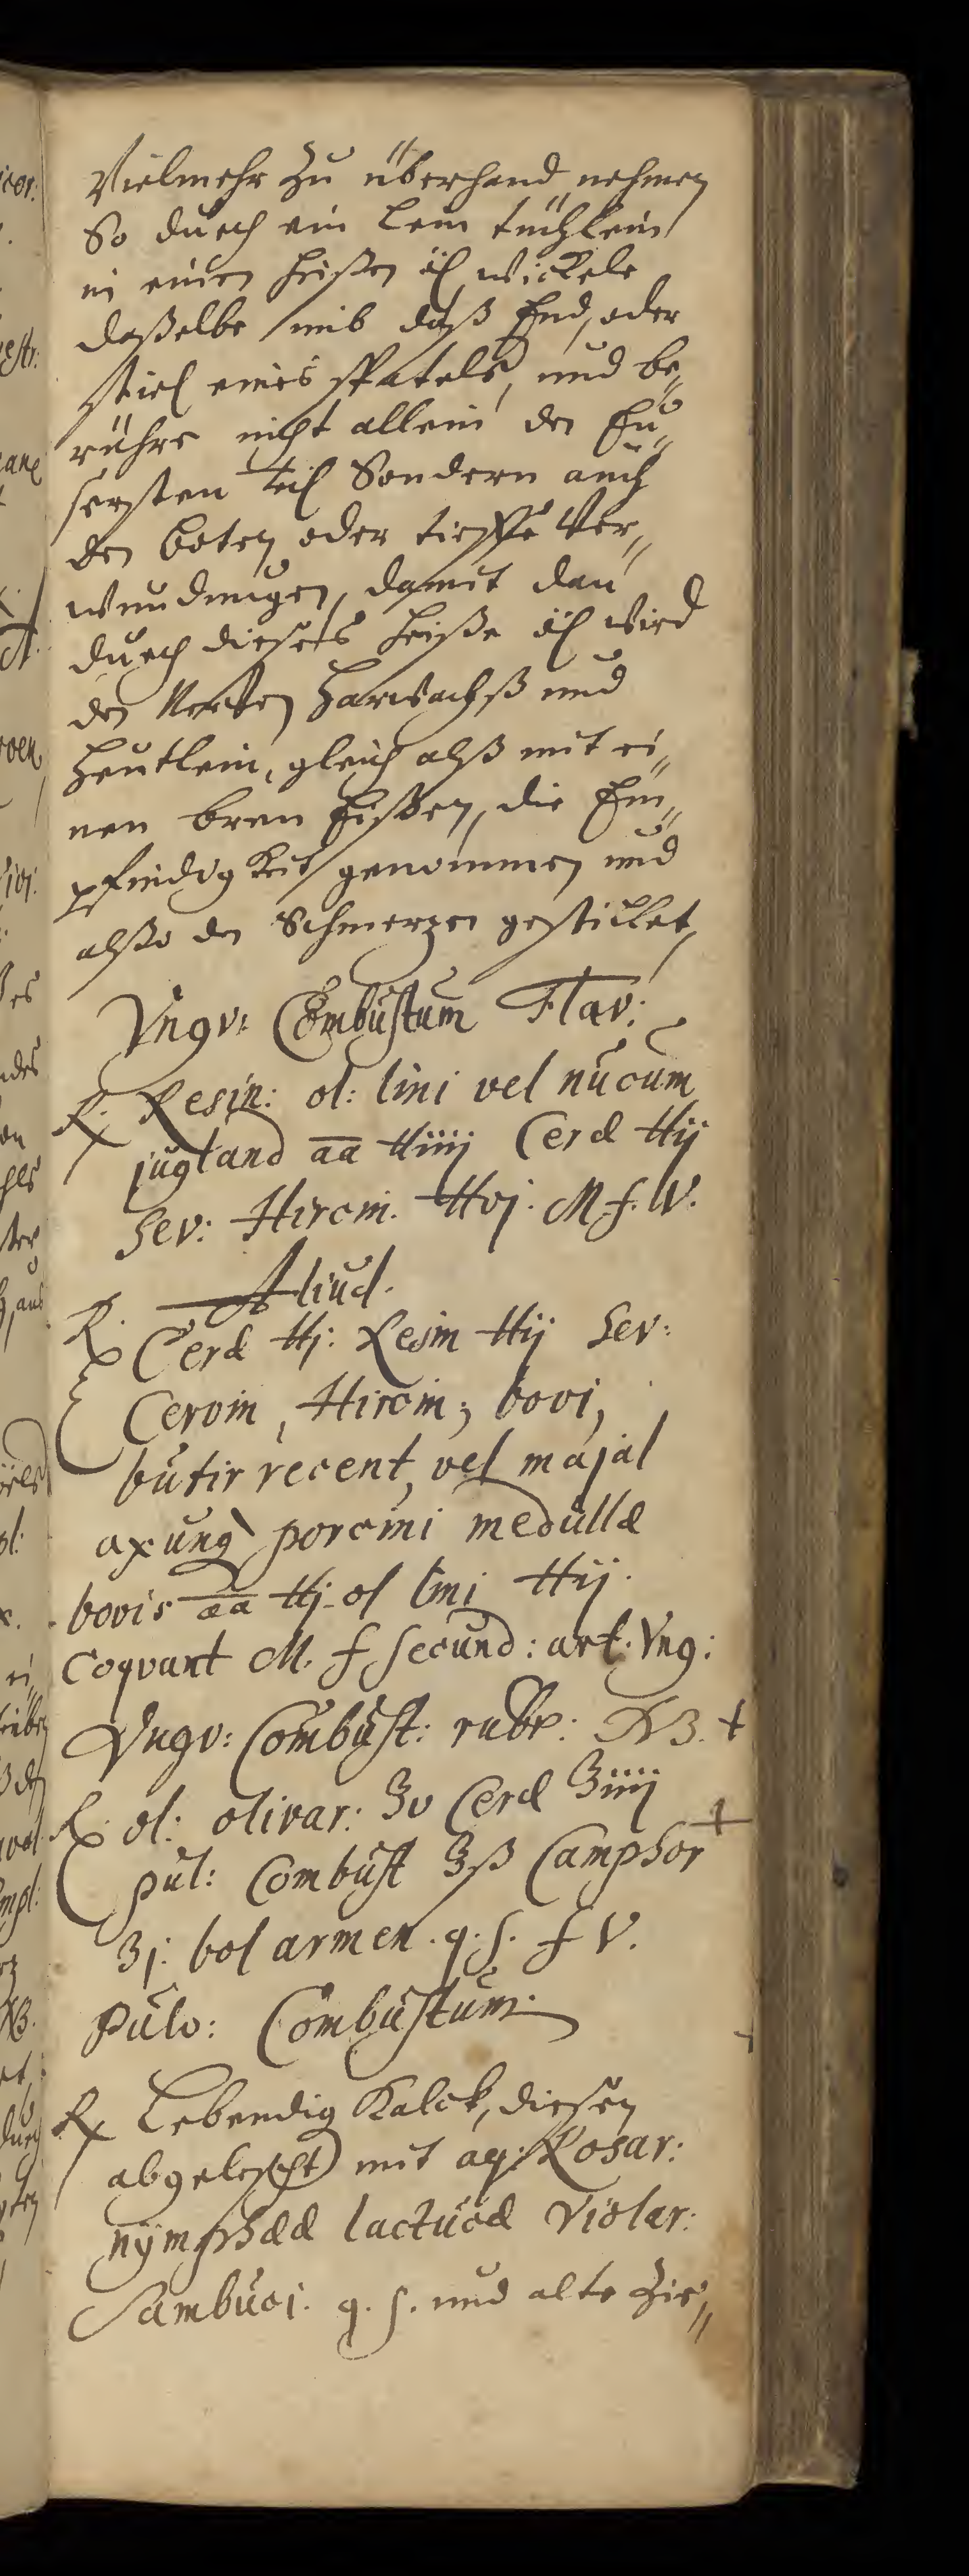 Vielmehr zu überhand nehmen
So duch ein lein tüchlein
in einen heißen öl wickele
daßelbe umb daß End, oder
stiel eines spatels, und be„
rühre nicht allein den Eu„
sersten teil Sondern auch
den boten oder tieffe Ver„
wundungen, damit dan
durch dieses heiße öl wird
den Nerven Harwachß und
Heutlein, gleich alß mit ei„
nen bren Eißen, die Em„
pfindigkeit genommen und
alßo den Schmerzen gestillet,
Vngv: Combustum Flav:
Rx Resin: ol: lini vel nucum
jugland aa ℔iiij Ceræ ℔ij
Sev: Hircin. ℔vj. M. f. V.
Aliud.
Rx Ceræ ℔j: Resin ℔ij Sev:
Cervin, Hircin, bovi,
butir recent, vel majal
axung porcini medullæ
bovis aa ℔j. ol lini ℔ij.
Coqvant M. f secund: art: Vng:
Vngv: Combust: rubr: NB. +
Rx ol: olivar: ℥v Ceræ ℥iiij
pul: Combust ℥ß Camphor +
ʒj. bol armen. q. s. f V.
Pulv: Combustum.
Rx Lebendig Kalck, diesen
abgelescht mit aq: Rosar:
nÿmphææ lactucæ Violar:
Sambuci. q. s. und alte Zie„